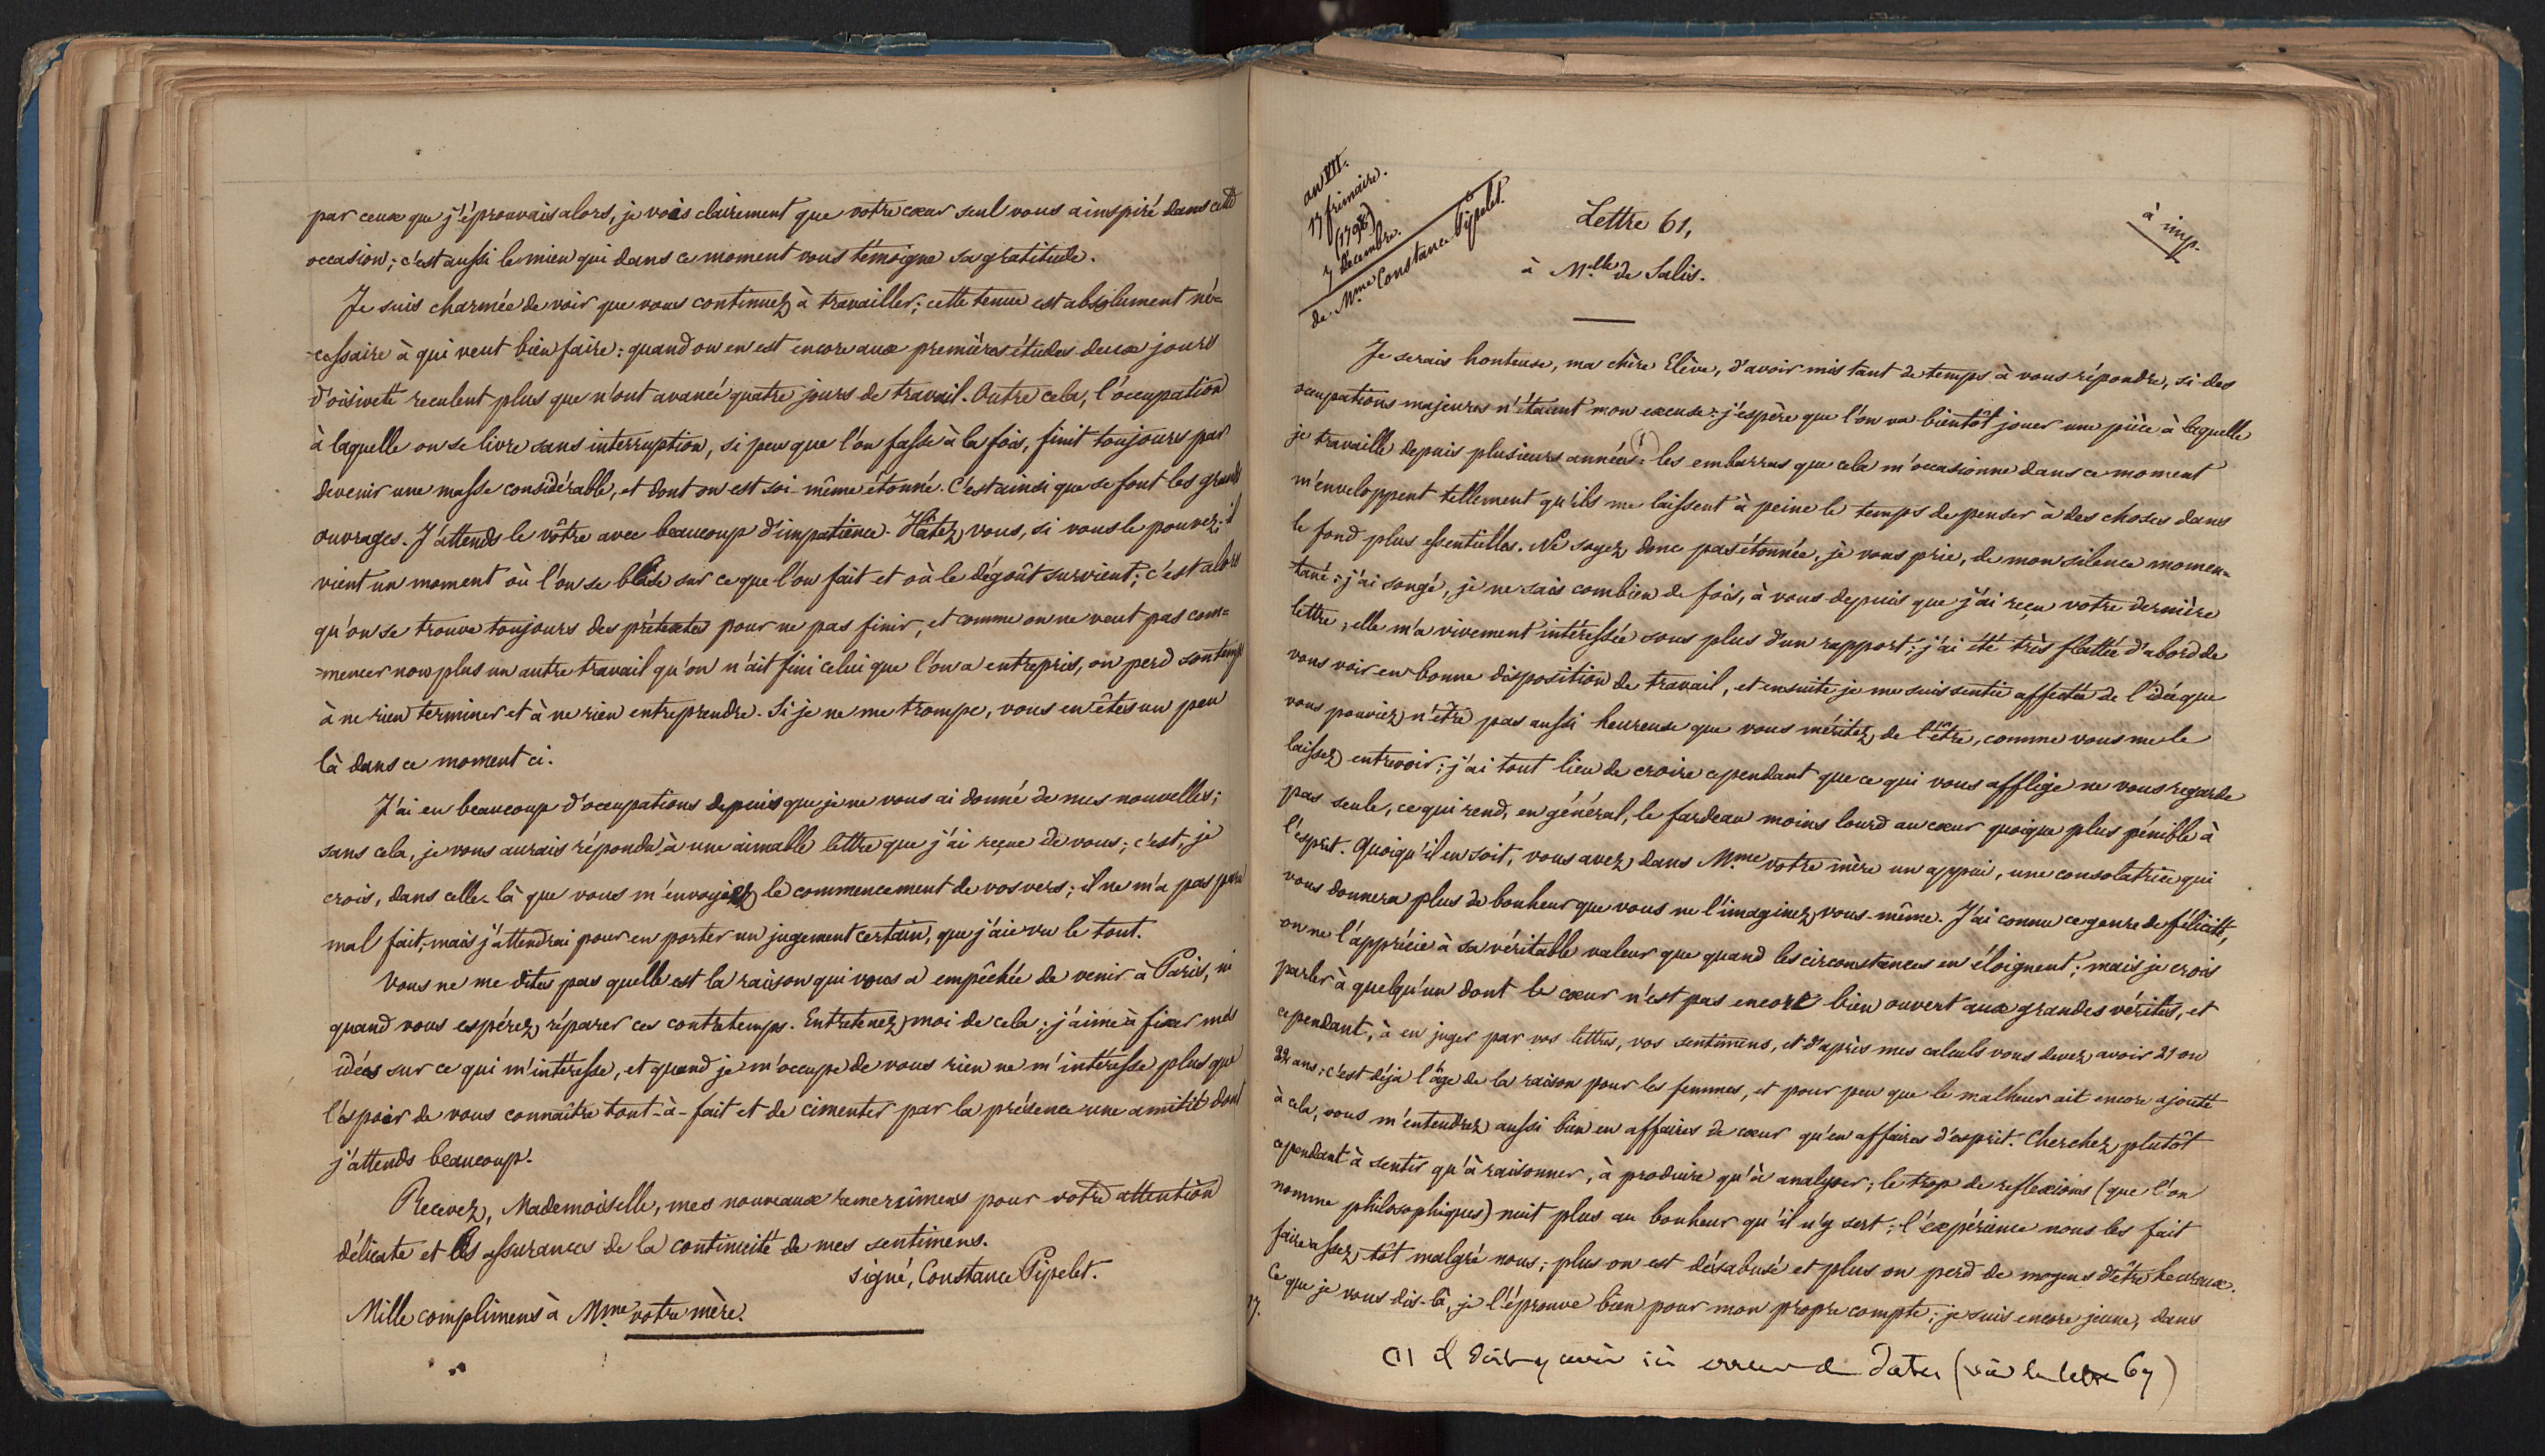 par ceux que j'éprouvais alors, je vois clairement que votre cœur seul vous a inspiré dans cette
occasion; c'est aussi le mien qui dans ce moment vous témoigne sa gratitude.
Je suis charmée de voir que vous continuez à travailler; cette tenue est absolument né=
-cessaire à qui veut bien faire: quand on en est encore aux premières études deux jours
d'oisiveté reculent plus que n'ont avancé quatre jours de travail. Outre cela, l'occupation
à laquelle on se livre sans interruption, si peu que l'on fasse à la fois, finit toujours par
devenir une masse considérable, et dont on est soi-même étonné. C'est ainsi que se font les grands
ouvrages. J'attends le vôtre avec beaucoup d'impatience. Hâtez vous, si vous le pouvez. il
vient un moment où l'on se blâse sur ce que l'on fait et où le dégoût survient; c'est alors
qu'on se trouve toujours des prétextes pour ne pas finir, et comme on ne veut pas com=
=mencer non plus un autre travail qu'on n'ait fini celui que l'on a entrepris, on perd son temps
à ne rien terminer et à ne rien entreprendre. Si je ne me trompe, vous en êtes un peu
là dans ce moment ci.
J'ai eu beaucoup d'occupations depuis que je ne vous ai donné de mes nouvelles;
sans cela, je vous aurais répondu à une aimable lettre que j'ai reçue de vous; c'est, je
crois, dans celle-là que vous m'envoyiez le commencement de vos vers; il ne m'a pas paru
mal fait, mais j'attendrai pour en porter un jugement certain, que j'aie vu le tout.
Vous ne me dites pas quelle est la raison qui vous a empêchée de venir à Paris, ni
quand vous espérez réparer ces contretemps. Entretenez moi de cela; j'aime à fixer mes
idées sur ce qui m'intéresse, et quand je m'occupe de vous rien ne m'intéresse plus que
l'espoir de vous connaître tout-à-fait et de cimenter par la présence une amitié dont
j'attends beaucoup.
Recevez, Mademoiselle, mes nouveaux remercîmens pour votre attention
délicate et les assurances de la continuité de mes sentimens.
signé, Constance Pipelet.
Mille complimens à Mme votre mère.
an VII.
17 frimaire.
(1798)
7 décembre.
de Mme Constance Pipelet.
Lettre 61,
à Melle de Salis.
à imp.
Je serais honteuse, ma chère Elève, d'avoir mis tant de temps à vous répondre, si des
occupations majeures n'étaient mon excuse: j'espère que l'on va bientôt jouer une pièce à laquelle
je travaille depuis plusieurs années (1): les embarras que cela m'occasionne dans ce moment
m'enveloppent tellement qu'ils me laissent à peine le temps de penser à des choses dans
le fond plus essentielles. Ne soyez donc pas étonnée, je vous prie, de mon silence momen=
tané: j'ai songé, je ne sais combien de fois, à vous depuis que j'ai reçu votre dernière
lettre; elle m'a vivement intéressée sous plus d'un rapport; j'ai été très flattée d'abord de
vous voir en bonne disposition de travail, et ensuite je me suis sentie affectée de l'idée que
vous pouviez n'être pas aussi heureuse que vous méritez de l'être, comme vous me le
laissez entrevoir; j'ai tout lieu de croire cependant que ce qui vous afflige ne vous regarde
pas seule, ce qui rend, en général, le fardeau moins lourd au cœur quoique plus pénible à
l'esprit. Quoiqu'il en soit, vous avez dans Mme votre mère un appui, une consolatrice qui
vous donnera plus de bonheur que vous ne l'imaginez vous-même. J'ai connu ce genre de félicité,
on ne l'apprécie à sa véritable valeur que quand les circonstances en éloignent; mais je crois
parler à quelqu'un dont le cœur n'est pas encore bien ouvert aux grandes vérités, et
cependant, à en juger par vos lettres, vos sentimens, et d'après mes calculs vous devez avoir 21 ou
22 ans; c'est déjà l'âge de la raison pour les femmes, et pour peu que le malheur ait encore ajouté
à cela, vous m'entendrez aussi bien en affaires de cœur qu'en affaires d'esprit. Cherchez plutôt
cependant à sentir qu'à raisonner, à produire qu'à analyser; le trop de reflexions (que l'on
nomme philosophiques) nuit plus au bonheur qu'il n'y sert; l'expérience nous les fait
faire assez tôt malgré nous; plus on est désabusé et plus on perd de moyens d'être heureux.
Ce que je vous dis-là, je l'éprouve bien pour mon propre compte; je suis encore jeune, dans
17.
(1) il doit y avoir ici erreur de dates (voir la lettre 67)